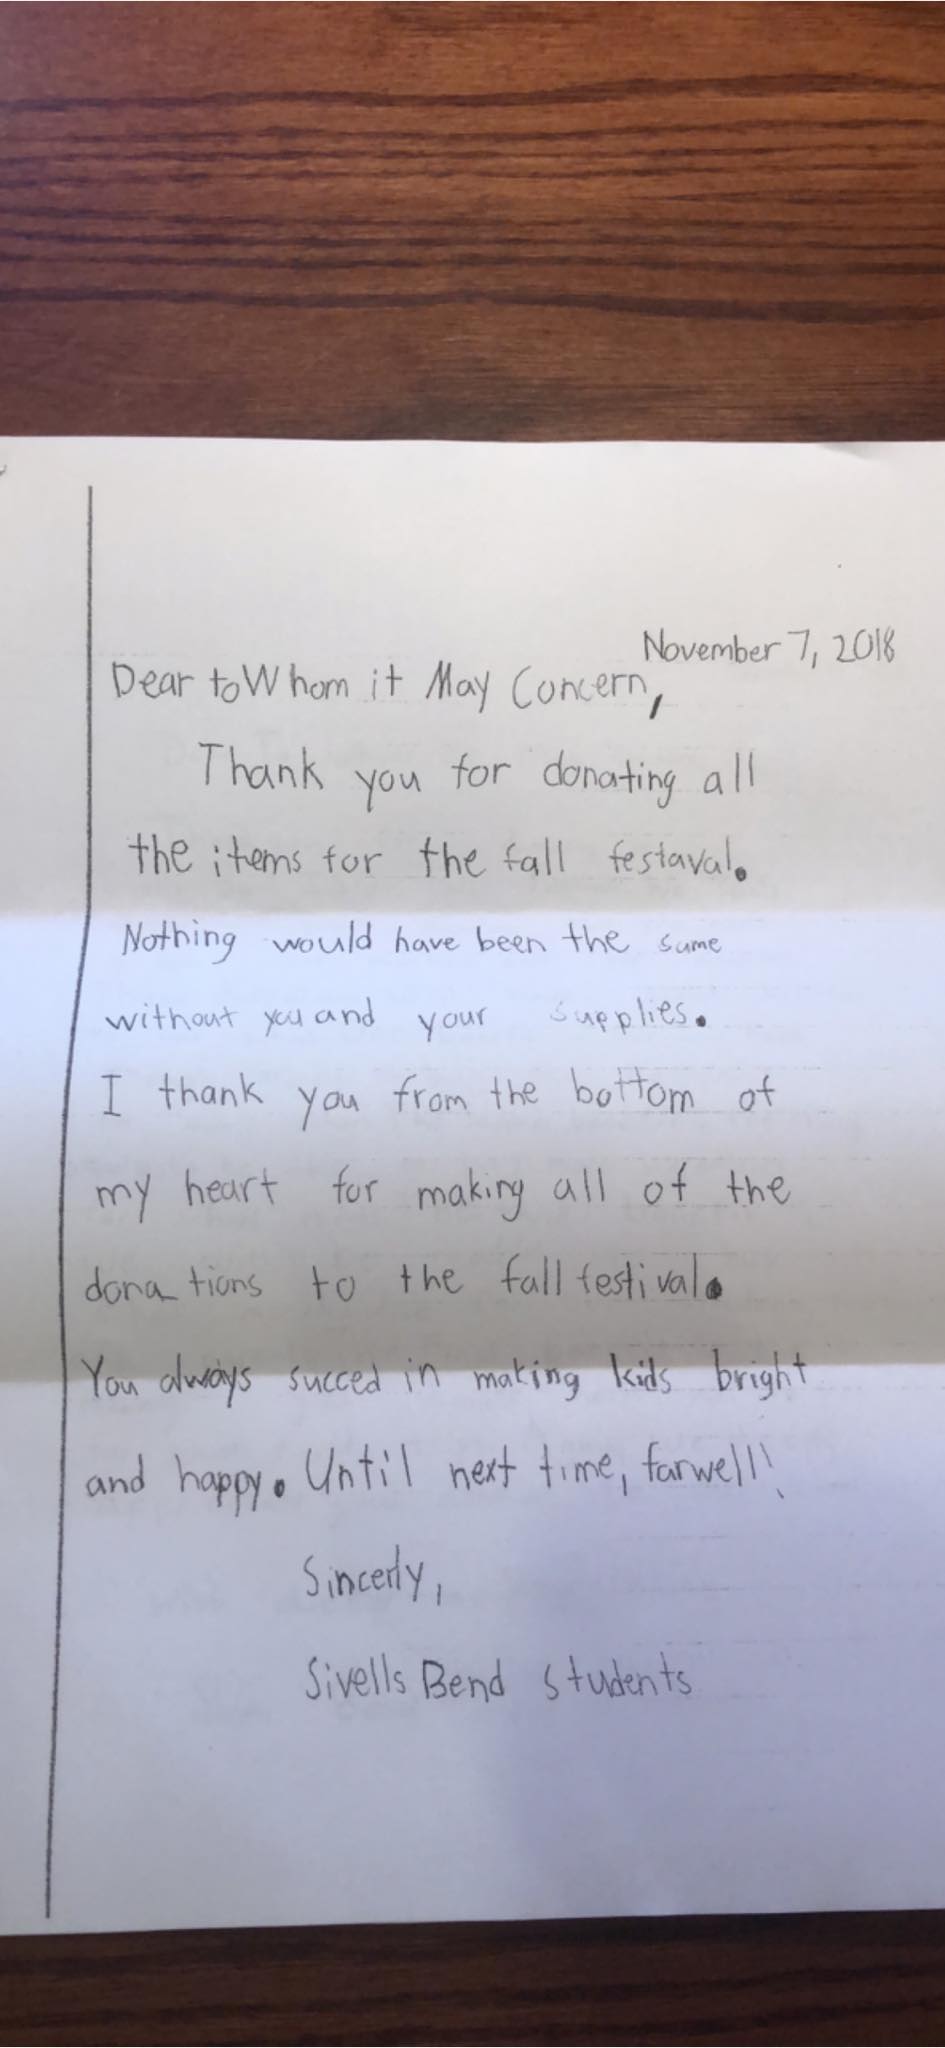 November 7, 2018
Dear to Whom it May Concern,
Thank you for donating all
the items for the fall festaval.
Nothing would have been the same
without you and your supplies.
I thank you from the bottom of
my heart for making all of the
donations to the fall festival.
You always succed in making kids bright
and happy. Until next time, farwell!
Sincerly,
Sivells Bend students